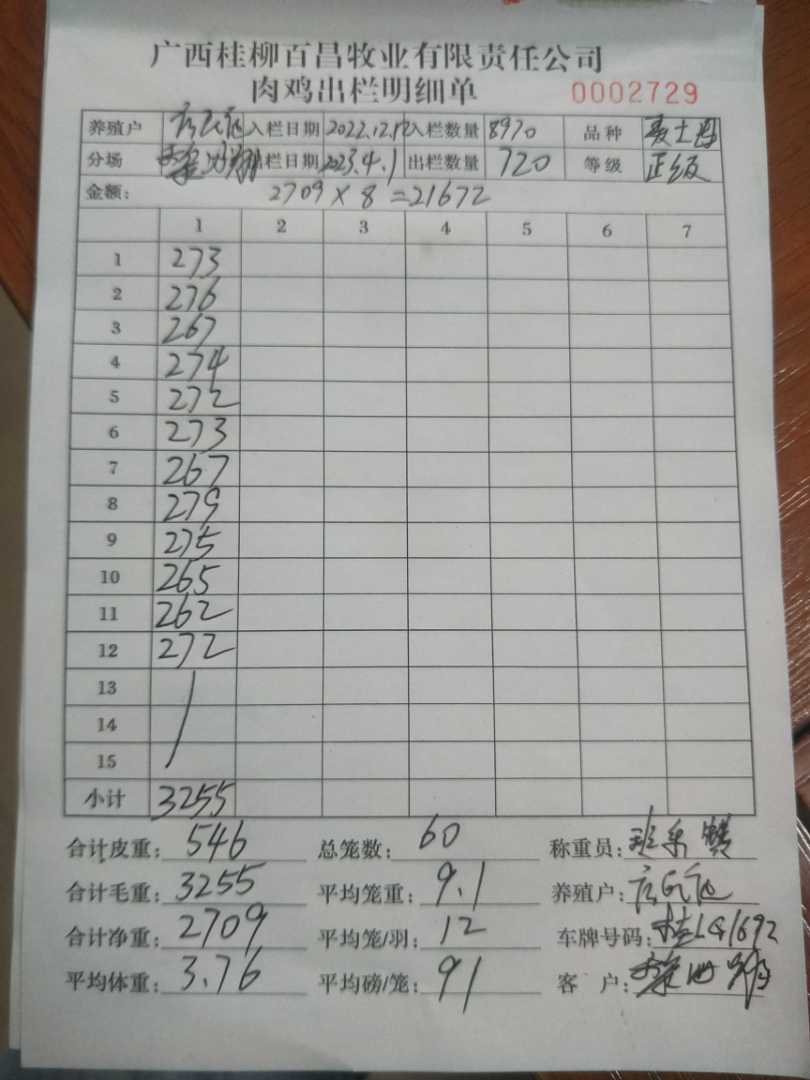 广西桂柳百昌牧业有限责任公司
肉鸡出栏明细单 0002729
养殖户 入栏日期 2022.12.17 入栏数量 8970 品种
分场 出栏日期 2023.4.1 出栏数量 720 等级 正级
金额: 2709 × 8 = 21672
1 2 3 4 5 6 7
1 273
2 276
3 267
4 274
5 272
6 273
7 267
8 279
9 275
10 265
11 262
12 272
13
14
15
小计 3255
合计皮重: 546 总笼数: 60 称重员:
合计毛重: 3255 平均笼重: 9.1 养殖户:
合计净重: 2709 平均笼/羽: 12 车牌号码:
平均体重: 3.76 平均磅/笼: 91 客 户: